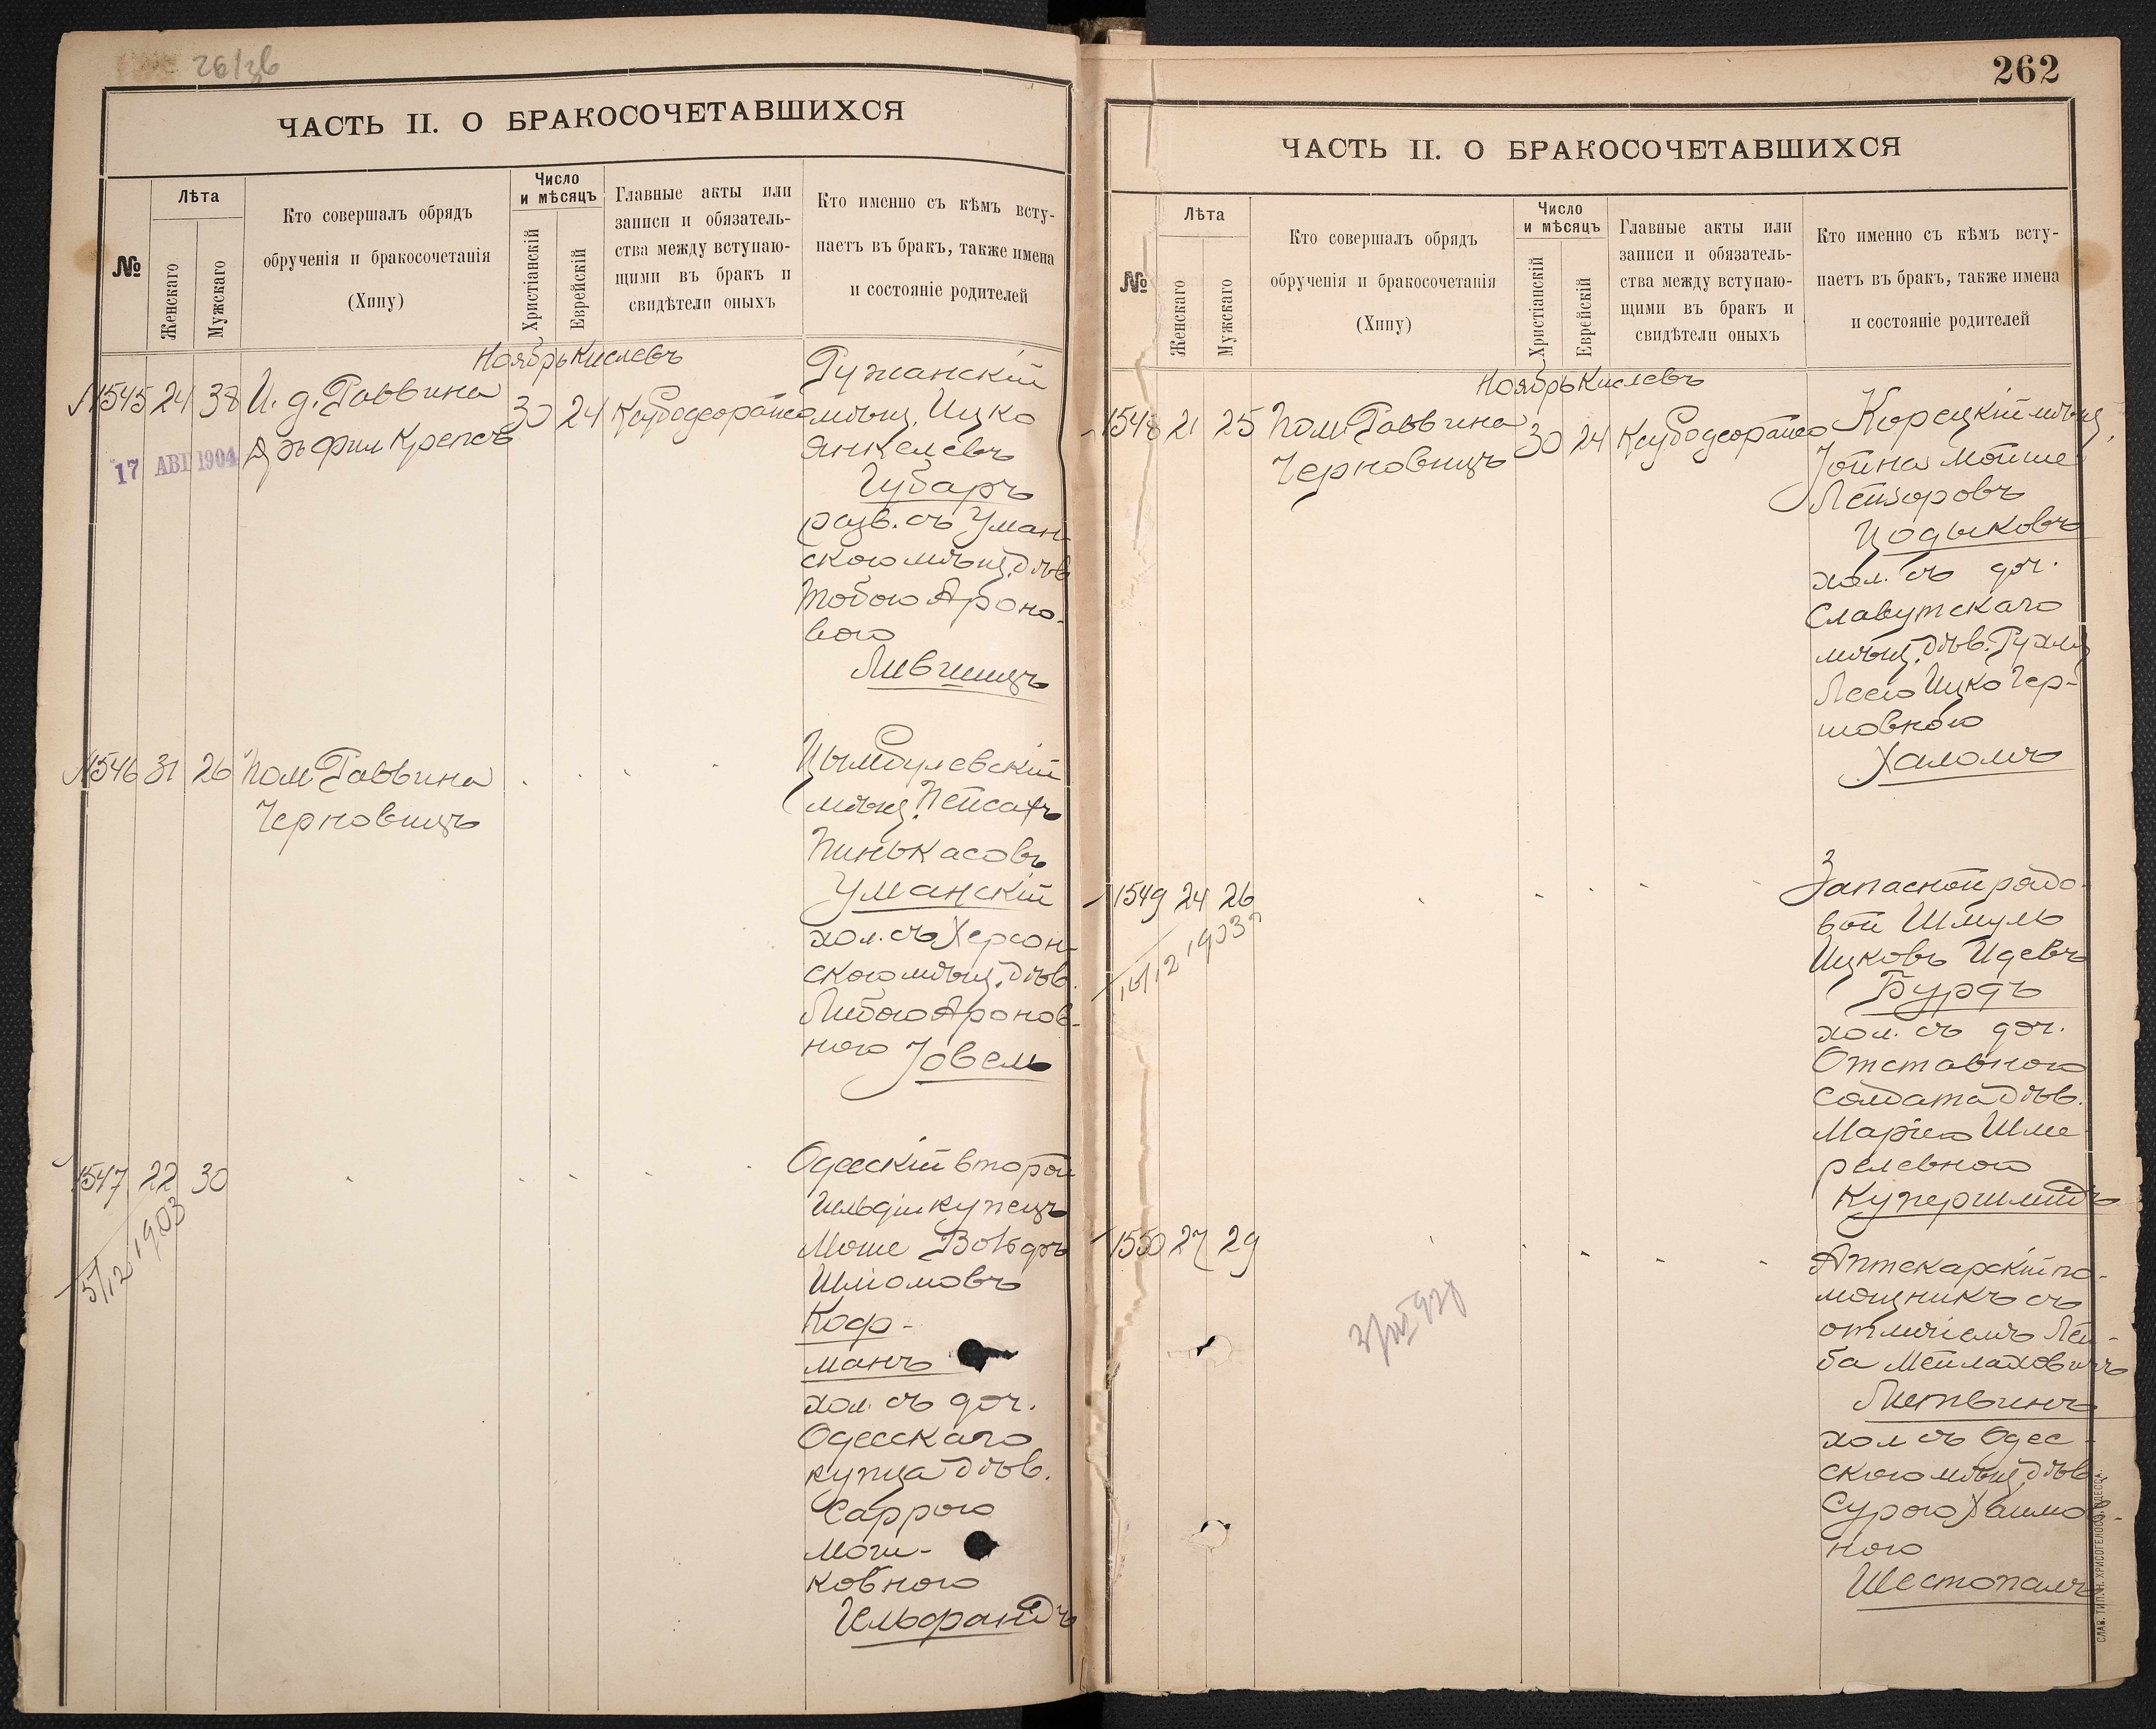 ЧАСТЬ II. О БРАКОСОЧЕТАВШИХСЯ
№
Лѣта
Женскаго
Мужскаго
Кто совершалъ обрядъ
обрученія и бракосочетанія
(Хипу)
Число
и мѣсяцъ
Христіанскій
Еврейскій
Главные акты или
записи и обязатель-
ства между вступаю-
щими въ бракъ и
свидѣтели оныхъ
Кто именно съ кѣмъ всту-
паетъ въ бракъ, также имена
и состояніе родителей
Ноябрь Кислевъ
1545 24 38 И. д. Раввина
Д-ръ Фил Крепсъ
30 24
17 АВГ 1904
Ружанскій
мѣщ. Ицко
Янкелевъ
Губаръ
разв. съ Уман-
скою мѣщ. дѣв.
Тобою Ароно-
вою
Лившицъ
1546 31 26 Пом Раввина
Черновицъ
Цымбулевскій
мѣщ. Пейсахъ
Пинькасовъ
Уманскій
хол. съ Херсон-
скою мѣщ. дѣв.
Либою Аронов-
ною Іовель
1547 22 30
5/12 1903
Одесскій второй
гильдіи купецъ
Моше Вольфъ
Шліомовъ
Коф-
манъ
хол. съ доч.
Одесскаго
купца дѣв.
Саррою
Моши-
ковною
Гельфандъ
262
ЧАСТЬ II. О БРАКОСОЧЕТАВШИХСЯ
№
Лѣта
Женскаго
Мужскаго
Кто совершалъ обрядъ
обрученія и бракосочетанія
(Хипу)
Число
и мѣсяцъ
Христіанскій
Еврейскій
Главные акты или
записи и обязатель-
ства между вступаю-
щими въ бракъ и
свидѣтели оныхъ
Кто именно съ кѣмъ всту-
паетъ въ бракъ, также имена
и состояніе родителей
Ноябрь Кислевъ
1548 21 25 Пом. Раввина
Черновицъ
30 24
Корецкій мѣщ.
Іойна Мойше
Лейзоровъ
Цодыковъ
хол. съ доч.
Славутскаго
мѣщ. дѣв. Рухлы
Леею Ицко Гер-
шовною
Халомъ
1549 24 26
16/12 1903
Запасной рядо-
вой Шмуль
Ицковъ Идевъ
Бурдъ
хол. съ доч.
Отставного
солдата дѣв.
Маріею Шме-
релевною
Купершмидъ
1550 27 29
Аптекарскій по-
мощникъ съ
отличіемъ Лей-
ба Мейлаховичъ
Литвинъ
хол съ Одес-
скою мѣщ. дѣв.
Сурою Хаимов-
ною
Шестопалъ
СЛАВ. ТИП. Н. ХРИСОГЕЛОСЪ, ОДЕССА